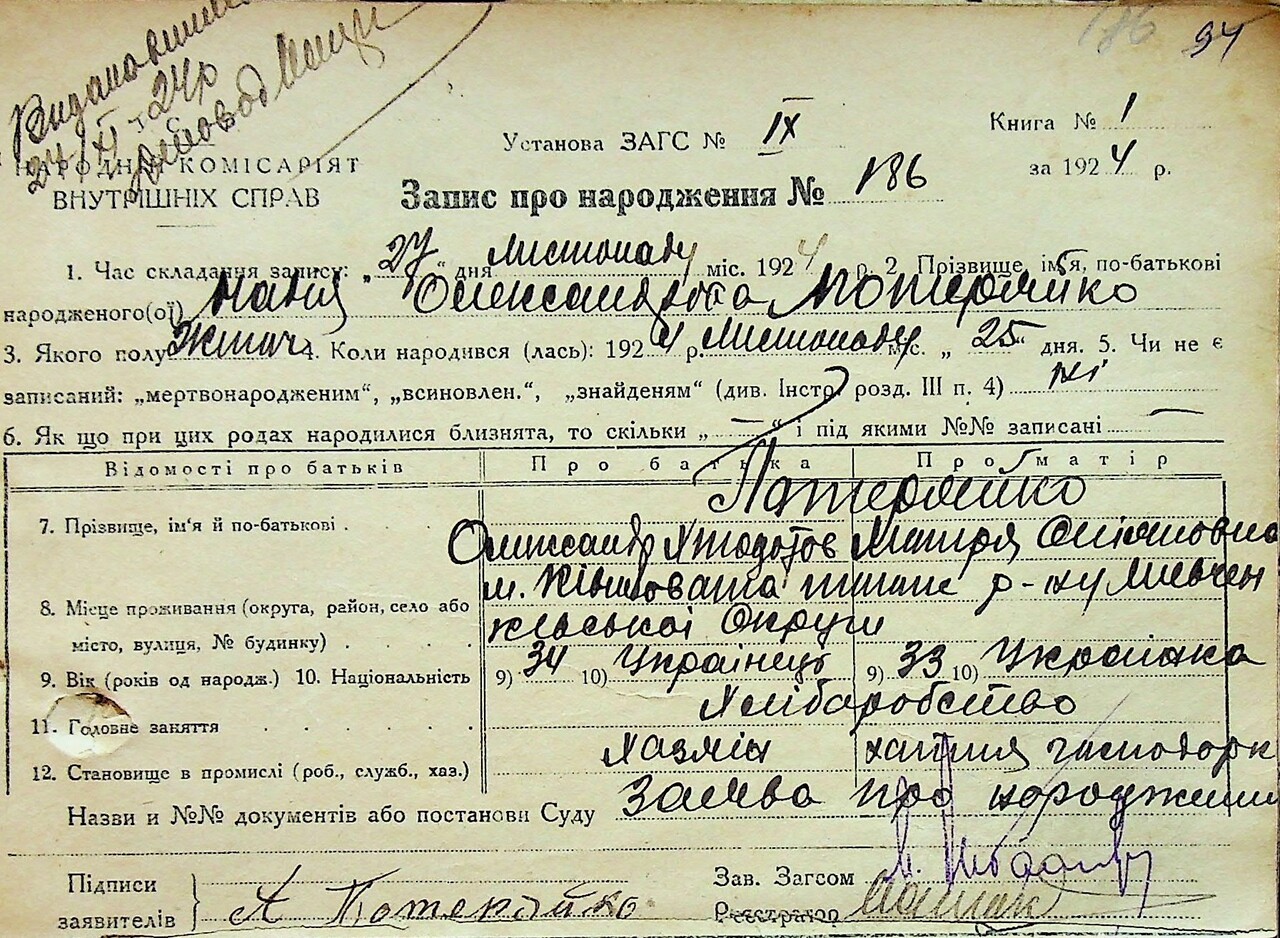 176 94
24/XI - 24р
С.
НАРОДНІЙ КОМІСАРІЯТ
ВНУТРІШНІХ СПРАВ
Установа ЗАГС № IX
Книга № 1
за 1924 р.
Запис про народження № 186
1. Час складання запису: „27“ дня листопаду міс. 1924 р. 2. Прізвище, ім'я, по-батькові
народженого(ої) Олександровна Потерайко
3. Якого полу Жіноч. 4. Коли народився (лась): 1924 р. Листопаду міс. „25“ дня. 5. Чи не є
записаний: „мертвонародженим“, „всиновлен.“, „знайденям“ (див. Інстр. розд. III п. 4) ні
6. Як що при цих родах народилися близнята, то скільки „—“ і під якими №№ записані —
Відомості про батьків Про батька Про матір
Потерайко
7. Прізвище, ім'я й по-батькові
Олександр Мотря
м. Ківшовата р-ну Шевчен
8. Місце проживання (округа, район, село або
місто, вулиця, № будинку)
ківської Округи
9. Вік (років од народж.) 10. Національність 9) 34 10) Українець 9) 33 10) Українка
11. Головне заняття Хліборобство
12. Становище в промислі (роб., служб., хаз.) Хазяїн господарк
Назви и №№ документів або постанови Суду Заява про народження
Підписи
заявителів А Потерайко
Зав. Загсом
Реєстратор